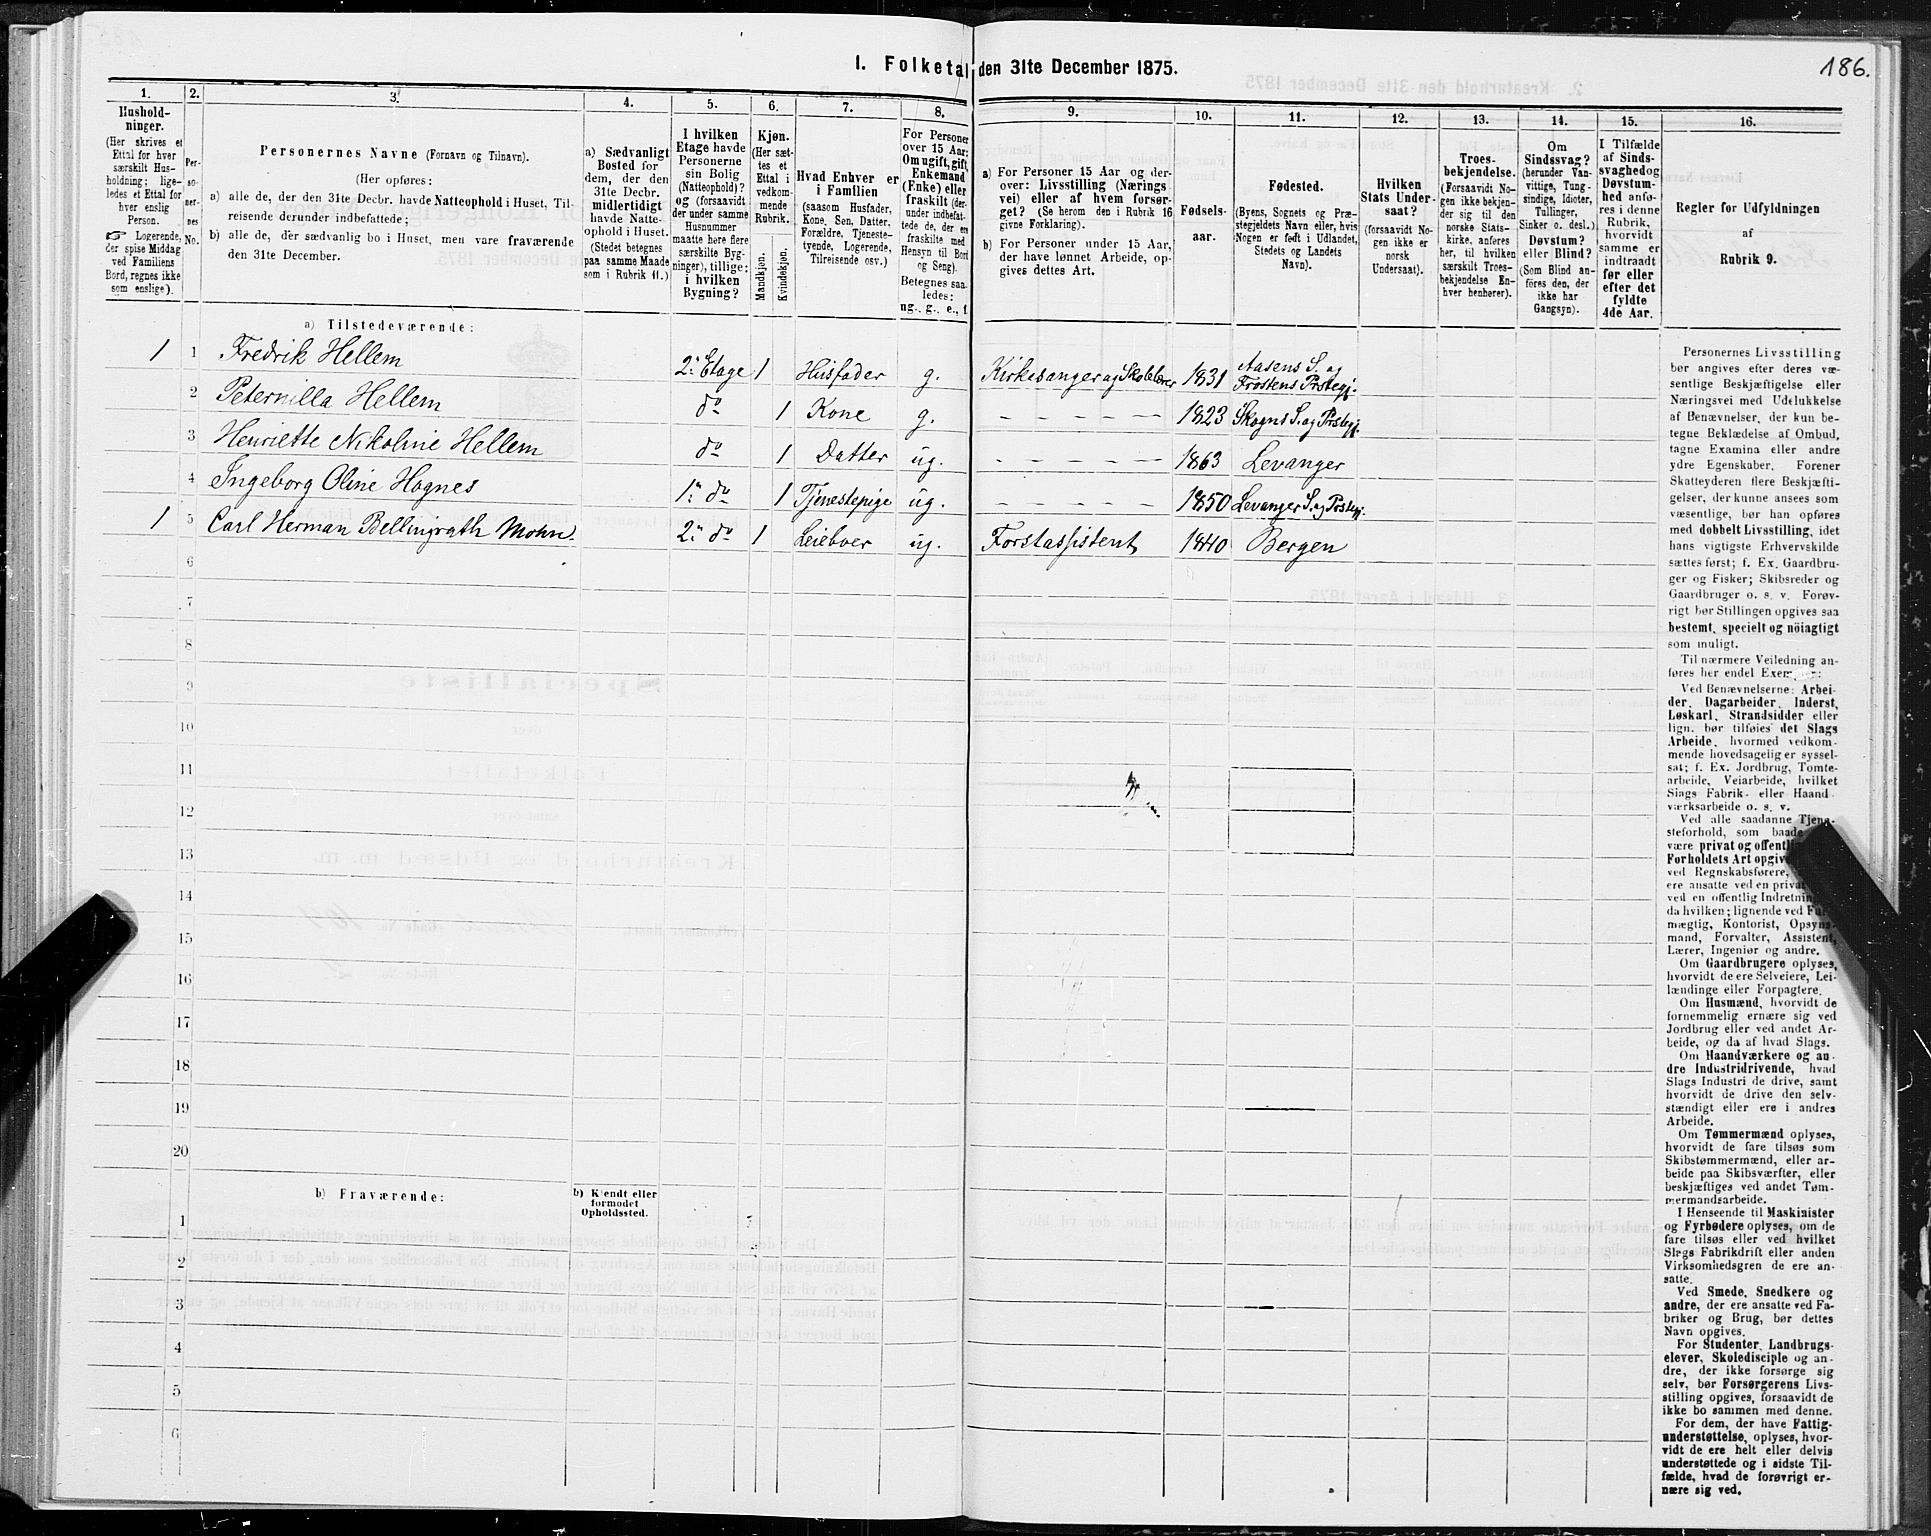 186.
1. Folketal den 31te December 1875.
1. 2. 3. 4. 5. 6. 7. 8. 9. 10. 11. 12. 13. 14. 15. 16.
Hushold-
ninger.
(Her skrives et
Ettal for hver
særskilt Hus-
holdning; lige-
ledes et Ettal for
hver enslig
Person.
☞ Logerende,
der spise Middag
ved Familiens
Bord, regnes ikke
som enslige).
Per-
so-
ner-
nes
No.
Personernes Navne (Fornavn og Tilnavn).
(Her opføres:
a) alle de, der den 31te Decbr. havde Natteophold i Huset, Til-
reisende derunder indbefattede;
b) alle de, der sædvanlig bo i Huset, men vare fraværende
den 31te December.
a) Sædvanligt
Bosted for
dem, der den
31te Decbr.
midlertidigt
havde Natte-
ophold i Huset.
(Stedet betegnes
paa samme Maade
som i Rubrik 11.)
I hvilken
Etage havde
Personerne
sin Bolig
(Natteophold)?
og (forsaavidt
der under samme
Husnummer
maatte høre flere
særskilte Byg-
ninger), tillige:
i hvilken
Bygning?
Kjøn.
(Her sæt-
tes et
Ettal i
vedkom-
mende
Rubrik.
Mandkjøn.
Kvindekjøn.
Hvad Enhver er
i Familien
(saasom Husfader,
Kone, Søn, Datter,
Forældre, Tjeneste-
tyende, Logerende,
Tilreisende osv.)
For Personer
over 15 Aar:
Om ugift, gift,
Enkemand
(Enke) eller
fraskilt (der-
under indbefat-
tede de, der ere
fraskilte med
Hensyn til Bord
og Seng).
Betegnes saa-
ledes:
ug., g., e., f
a) For Personer 15 Aar og der-
over: Livsstilling (Nærings
vei) eller af hvem forsør-
get? (Se herom den i Rubrik 16
givne Forklaring).
b) For Personer under 15 Aar,
der have lønnet Arbeide, op-
gives dettes Art.
Fødsels-
aar.
Fødested.
(Byens, Sognets og Præ-
stegjeldets Navn eller, hvis
Nogen er født i Udlandet,
Stedets og Landets
Navn).
Hvilken
Stats Under-
saat?
(forsaavidt No-
gen ikke er
norsk
Undersaat).
Troes-
bekjendelse.
(Forsaavidt No-
gen ikke bekjen-
der sig til den
norske Stats-
kirke, anføres
her, til hvilken
særskilt Troes-
bekjendelse En-
hver henhører).
Om
Sindssvag?
(herunder Van-
vittige, Tung-
sindige, Idioter,
Tullinger,
Sinker o. desl.)
Døvstum?
eller Blind?
(Som Blind an-
føres den, der
ikke har
Gangsyn).
I Tilfælde
af Sinds-
svaghed og
Døvstum-
hed anfø-
res i denne
Rubrik,
hvorvidt
samme er
indtraadt
før eller
efter det
fyldte
4de Aar.
Regler for Udfyldningen
af
Rubrik 9.
a) Tilstedeværende:
1 1 Fredrik Hellem 2. Etage 1 Husfader g. Kirkesanger og Skolelærer 1831 Aasens S. og Frostens Prstegj.
2 Peternilla Hellem do 1 Kone g. – – – – – 1823 Skogns S. og Prstegj.
3 Henriette Nikoline Hellem do 1 Datter ug. – – – – – 1863 Levanger
4 Ingeborg Oline Hognes 1. do 1 Tjenestepige ug. 1850 Levanger S. og Prstegj.
1 5 Carl Herman Bellingrath Mohn 2. do 1 Leieboer ug. Forstassistent 1840 Bergen
6
7
8
9
10
11
12
13
14
15
16
17
18
19
20
b) Fraværende: b) Kjendt eller
formodet
Opholdssted.
1
2
3
4
5
6
Personernes Livsstilling
bør angives efter deres væ-
sentlige Beskjæftigelse eller
Næringsvei med Udelukkelse
af Benævnelser, der kun be-
tegne Beklædelse af Ombud,
tagne Examina eller andre
ydre Egenskaber. Forener
Skatteyderen flere Beskjæfti-
gelser, der kunne ansees som
væsentlige, bør han opføres
med dobbelt Livsstilling, idet
hans vigtigste Erhvervskilde
sættes først; f. Ex. Gaardbru-
ger og Fisker; Skibsreder og
Gaardbruger o. s. v. Forøv-
rigt bør Stillingen opgives saa
bestemt, specielt og nöiagtigt
som muligt.
Til nærmere Veiledning an-
føres her endel Exempler:
Ved Benævnelserne: Arbei-
der, Dagarbeider, Inderst,
Løskarl, Strandsidder eller
lign. bør tilføies det Slags
Arbeide, hvormed vedkom-
mende hovedsagelig er syssel-
sat; f. Ex. Jordbrug, Tomte-
arbeide, Veiarbeide, hvilket
Slags Fabrik- eller Haand-
værksarbeide o. s. v.
Ved alle saadanne Tjene-
steforhold, som baade
være privat og offentlig
Forholdets Art opgives
ved Regnskabsførere,
ere ansatte ved en privat
ved en offentlig Indretning
da hvilken; lignende ved Fuld-
mægtig, Kontorist, Opsyns-
mand, Forvalter, Assistent,
Lærer, Ingeniør og andre.
Om Gaardbrugere oplyses,
hvorvidt de ere Selveiere, Lei-
lændinge eller Forpagtere.
Om Husmænd, hvorvidt de
fornemmelig ernære sig ved
Jordbrug eller ved andet Ar-
beide, og da af hvad Slags.
Om Haandværkere og an-
dre Industridrivende, hvad
Slags Industri de drive, samt
hvorvidt de drive den selv-
stændigt eller ere i andres
Arbeide.
Om Tømmermænd oplyses,
hvorvidt de fare tilsøs som
Skibstømmermænd, eller ar-
beide paa Skibsværfter, eller
beskjæftiges ved andet Tøm-
mermandsarbeide.
I Henseende til Maskinister
og Fyrbødere oplyses, om de
fare tilsøs eller ved hvilket
Slags Fabrikdrift eller anden
Virksomhedsgren de ere an-
satte.
Ved Smede, Snedkere og
andre, der ere ansatte ved Fa-
briker og Brug, bør dettes
Navn opgives.
For Studenter, Landbrugs-
elever, Skoledisciple og an-
dre, der ikke forsørge sig
selv, bør Forsørgerens Livs-
stilling opgives, forsaavidt de
ikke bo sammen med denne.
For dem, der have Fattig-
understøttelse, oplyses, hvor-
vidt de ere helt eller delvis
understøttede og i sidste Til-
fælde, hvad de forøvrigt er-
nære sig ved.